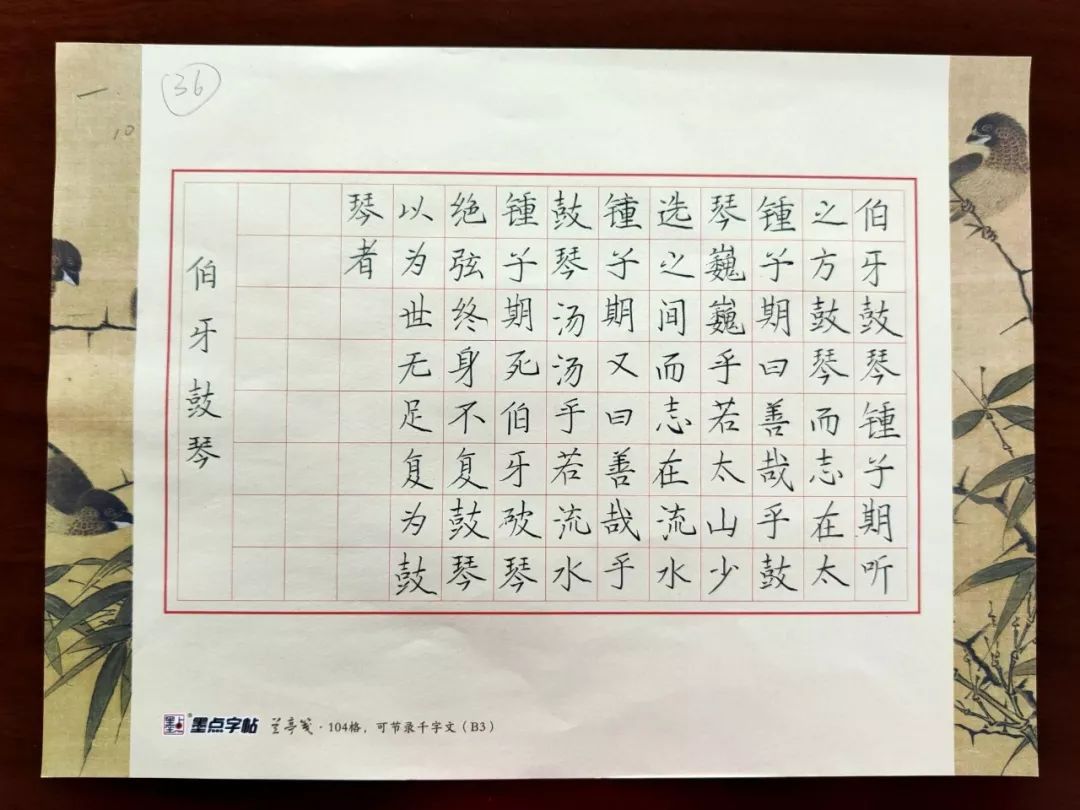 36
一.
10
伯牙鼓琴锺子期听
之方鼓琴而志在太
锺子期曰善哉乎鼓
琴巍巍乎若太山少
选之间而志在流水
锺子期又曰善哉乎
鼓琴汤汤乎若流水
锺子期死伯牙破琴
绝弦终身不复鼓琴
以为世无足复为鼓
琴者
伯牙鼓琴
墨点® 墨点字帖 兰亭笺·104格，可节录千字文（B3）